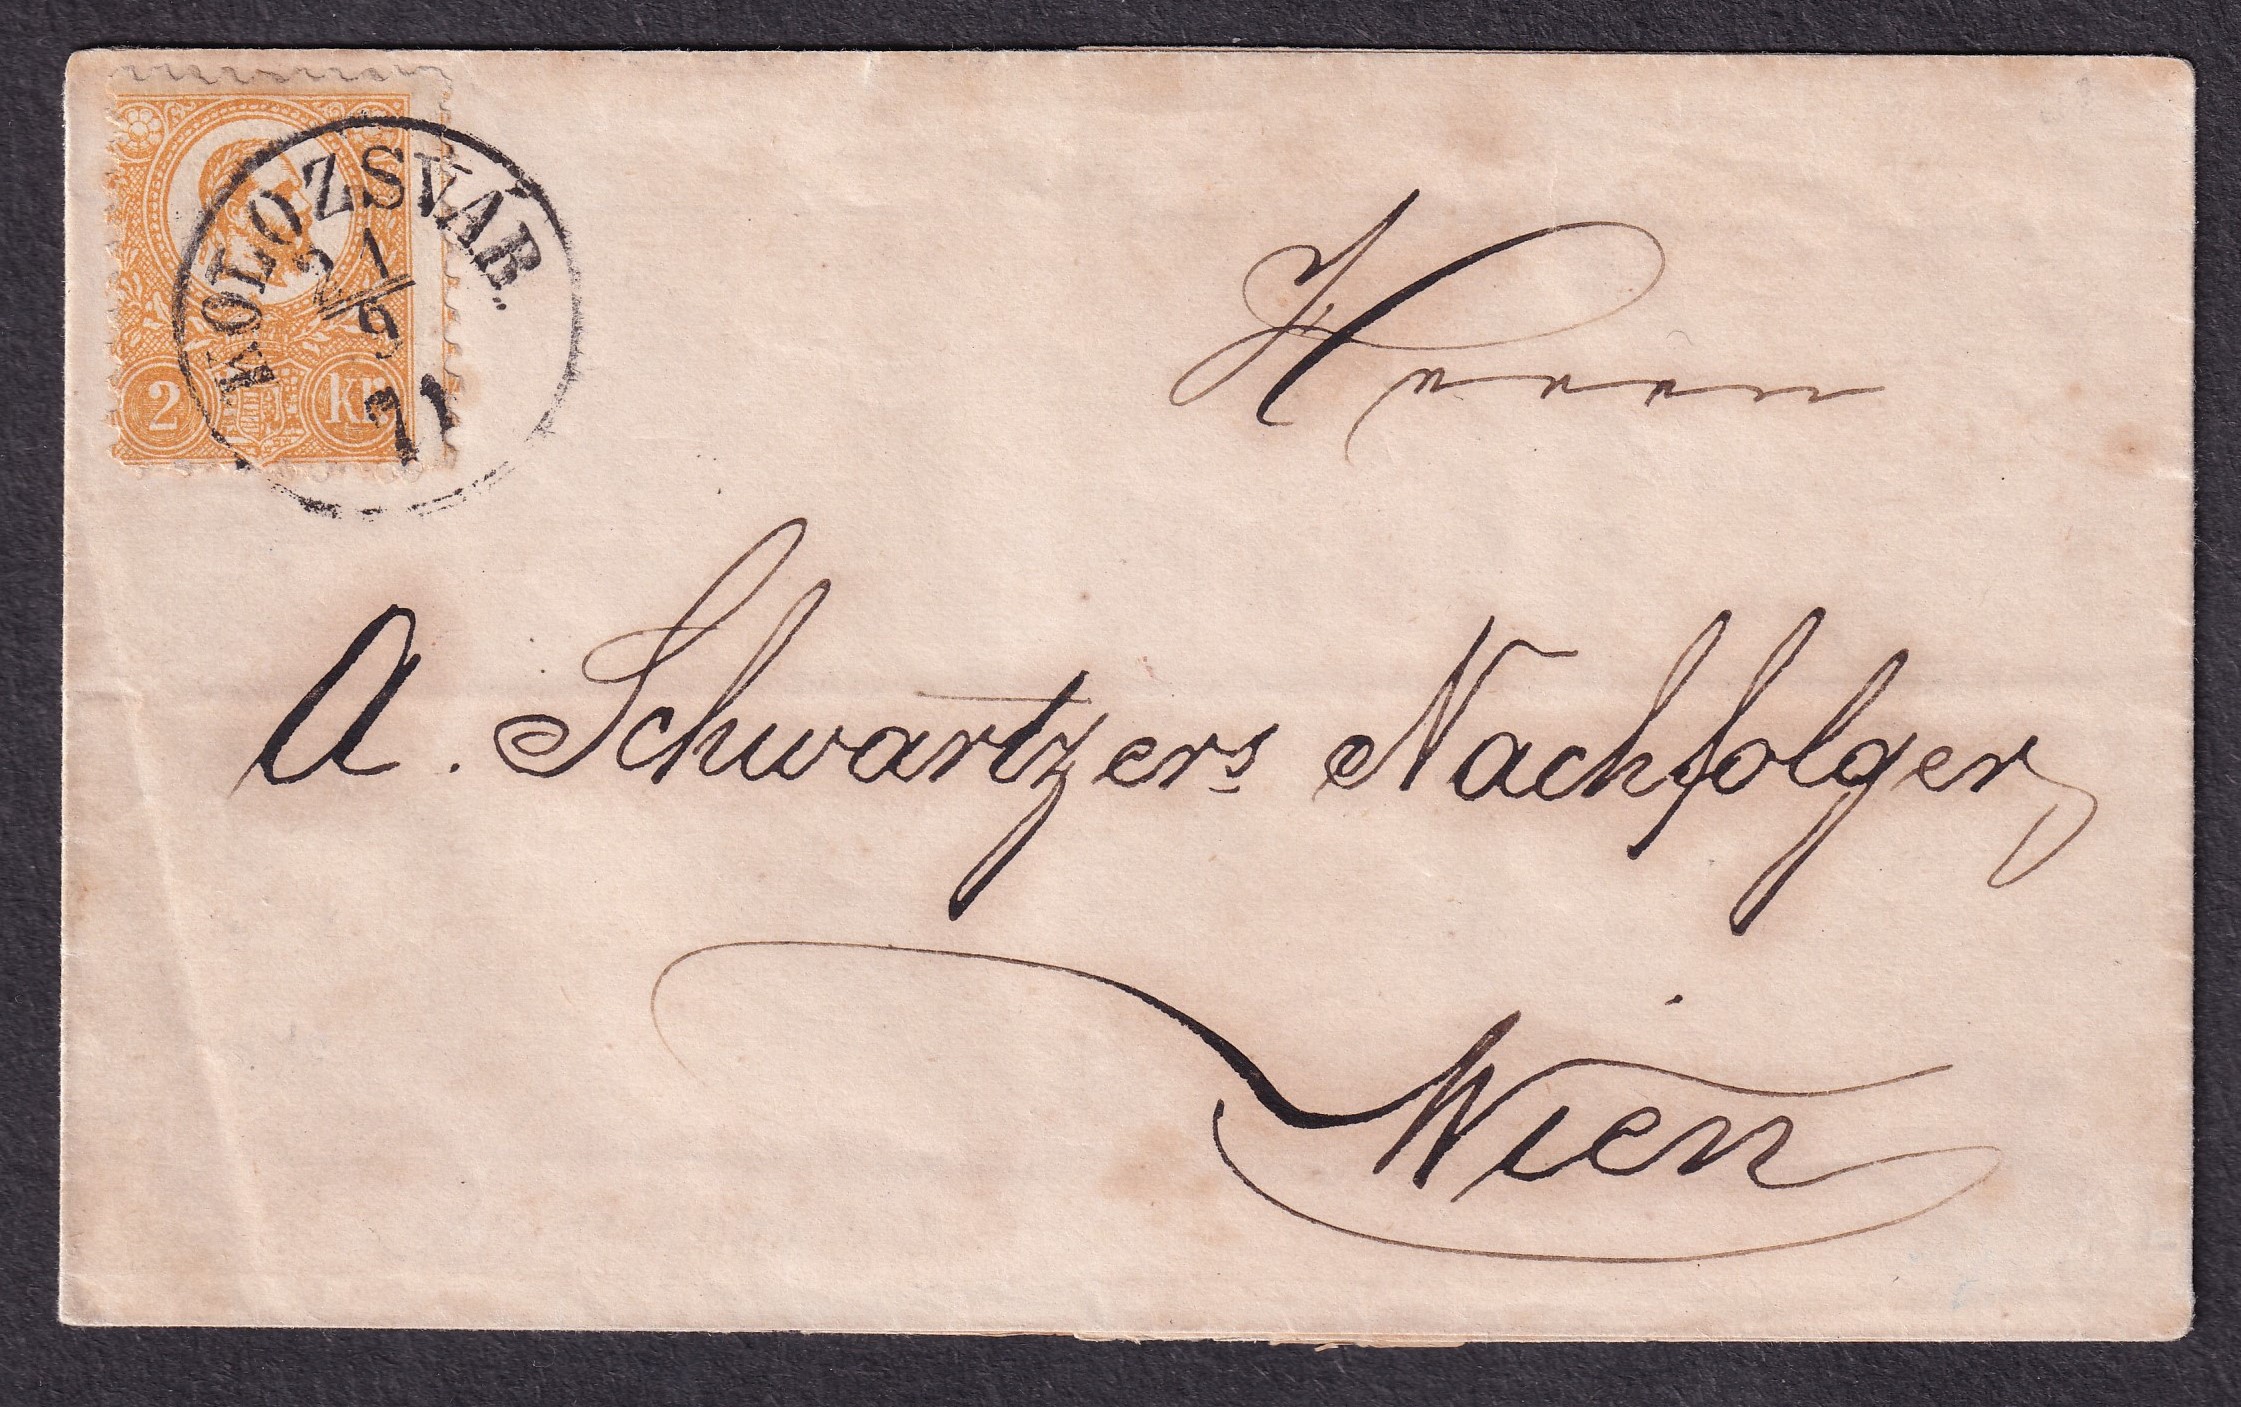 KOLOZSVÁR.
21/9
71
2 kr
Herrn
A. Schwartzers Nachfolger
Wien